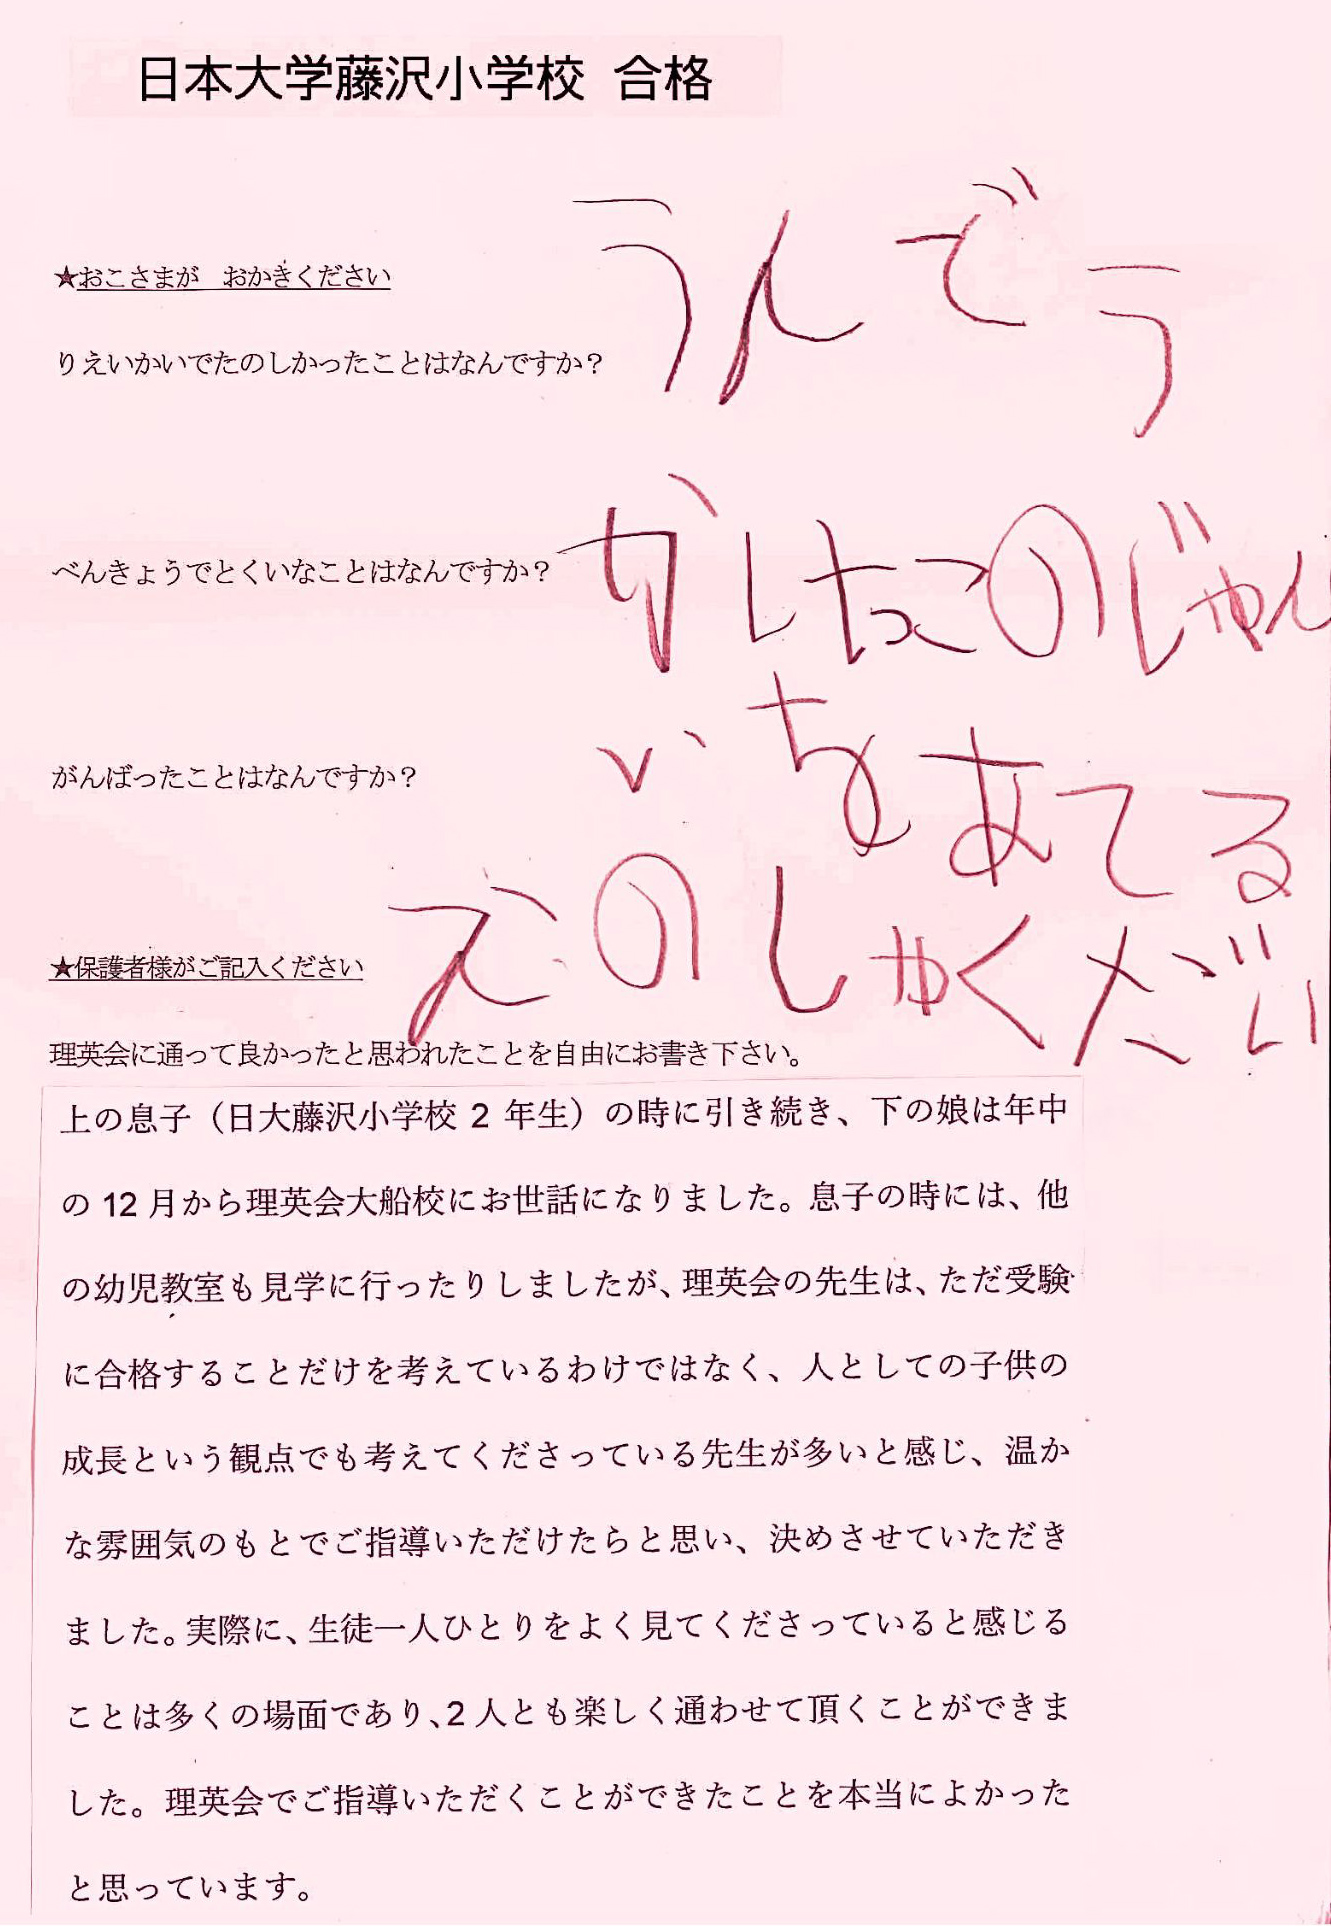 日本大学藤沢小学校 合格
★おこさまが おかきください
りえいかいでたのしかったことはなんですか？
うんどう
べんきょうでとくいなことはなんですか？
かしたっこのじゅん
いちをあてる
がんばったことはなんですか？
えのしゅくだい
★保護者様がご記入ください
理英会に通って良かったと思われたことを自由にお書き下さい。
上の息子（日大藤沢小学校 2 年生）の時に引き続き、下の娘は年中
の 12 月から理英会大船校にお世話になりました。息子の時には、他
の幼児教室も見学に行ったりしましたが、理英会の先生は、ただ受験
に合格することだけを考えているわけではなく、人としての子供の
成長という観点でも考えてくださっている先生が多いと感じ、温か
な雰囲気のもとでご指導いただけたらと思い、決めさせていただき
ました。実際に、生徒一人ひとりをよく見てくださっていると感じる
ことは多くの場面であり、2 人とも楽しく通わせて頂くことができま
した。理英会でご指導いただくことができたことを本当によかった
と思っています。